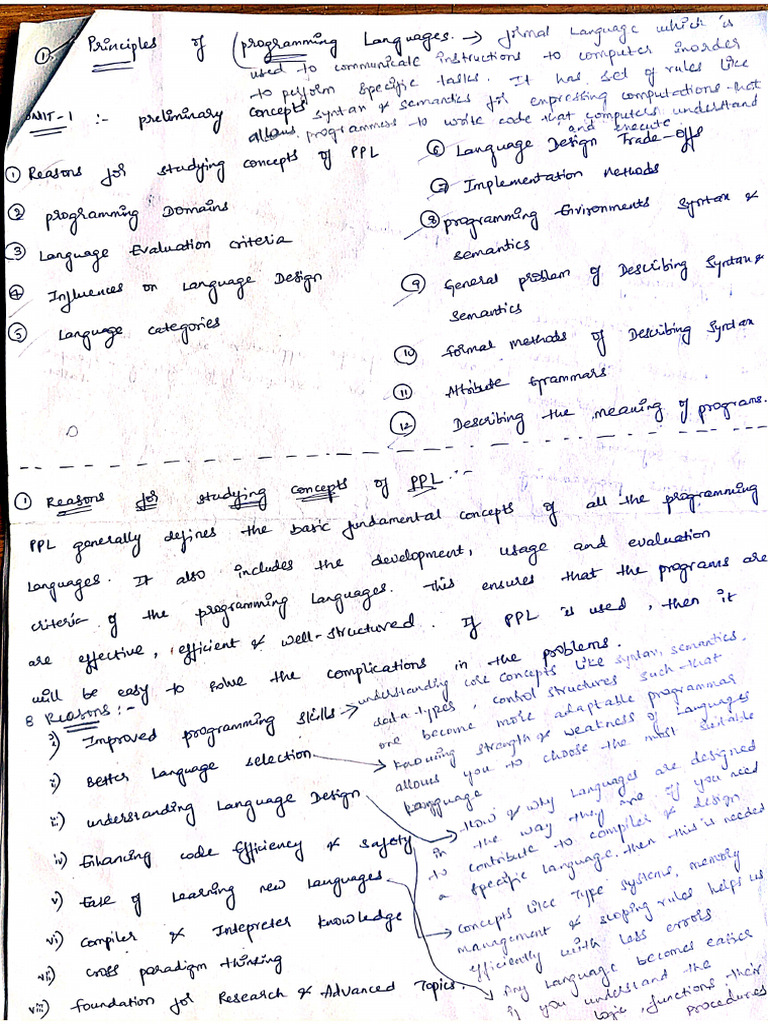 ① Principles of (programming Languages. → formal Language which is
used to communicate instructions to computer inorder
to perform specific tasks. It has set of rules like
UNIT-1 :- preliminary concepts syntax & semantics for expressing computations that
allows programmers to write code that computers understand
and execute
① Reasons for studying concepts of PPL
② programming Domains
③ Language Evaluation criteria
④ Influences on Language Design
⑤ Language categories
⑥ Language Design Trade-offs
⑦ Implementation Methods
⑧ programming Environments Syntax &
semantics
⑨ General problem of Describing Syntax &
Semantics
⑩ formal methods of Describing Syntax
⑪ Attribute Grammars
⑫ Describing the meaning of programs.
① Reasons for studying concepts of PPL :-
PPL generally defines the basic fundamental concepts of all the programming
Languages. It also includes the development, usage and evaluation
criteria of the programming Languages. This ensures that the programs are
are effective, efficient & well-structured. If PPL is used, then it
will be easy to solve the complications in the problems.
8 Reasons :-
i) Improved programming skills → understanding core concepts like syntax, semantics,
data-types, control structures such that
one become more adaptable programmar
ii) Better Language selection
knowing strength & weakness of Languages
allows you to choose the most suitable
Language
iii) understanding Language Design
How & why Languages are designed
in the way they are. if you need
to contribute to compiler & design
a specific language. then this is needed
iv) Enhancing code Efficiency & safety
concepts like Type systems, memory
management & scoping rules helps us
efficiently with less errors
v) Ease of Learning new Languages
Any Language becomes easier
if you understand the
logic, functions, their
procedures
vi) compiler & Intepreter knowledge
vii) cross paradigm thinking
viii) foundation for Research & Advanced Topics.